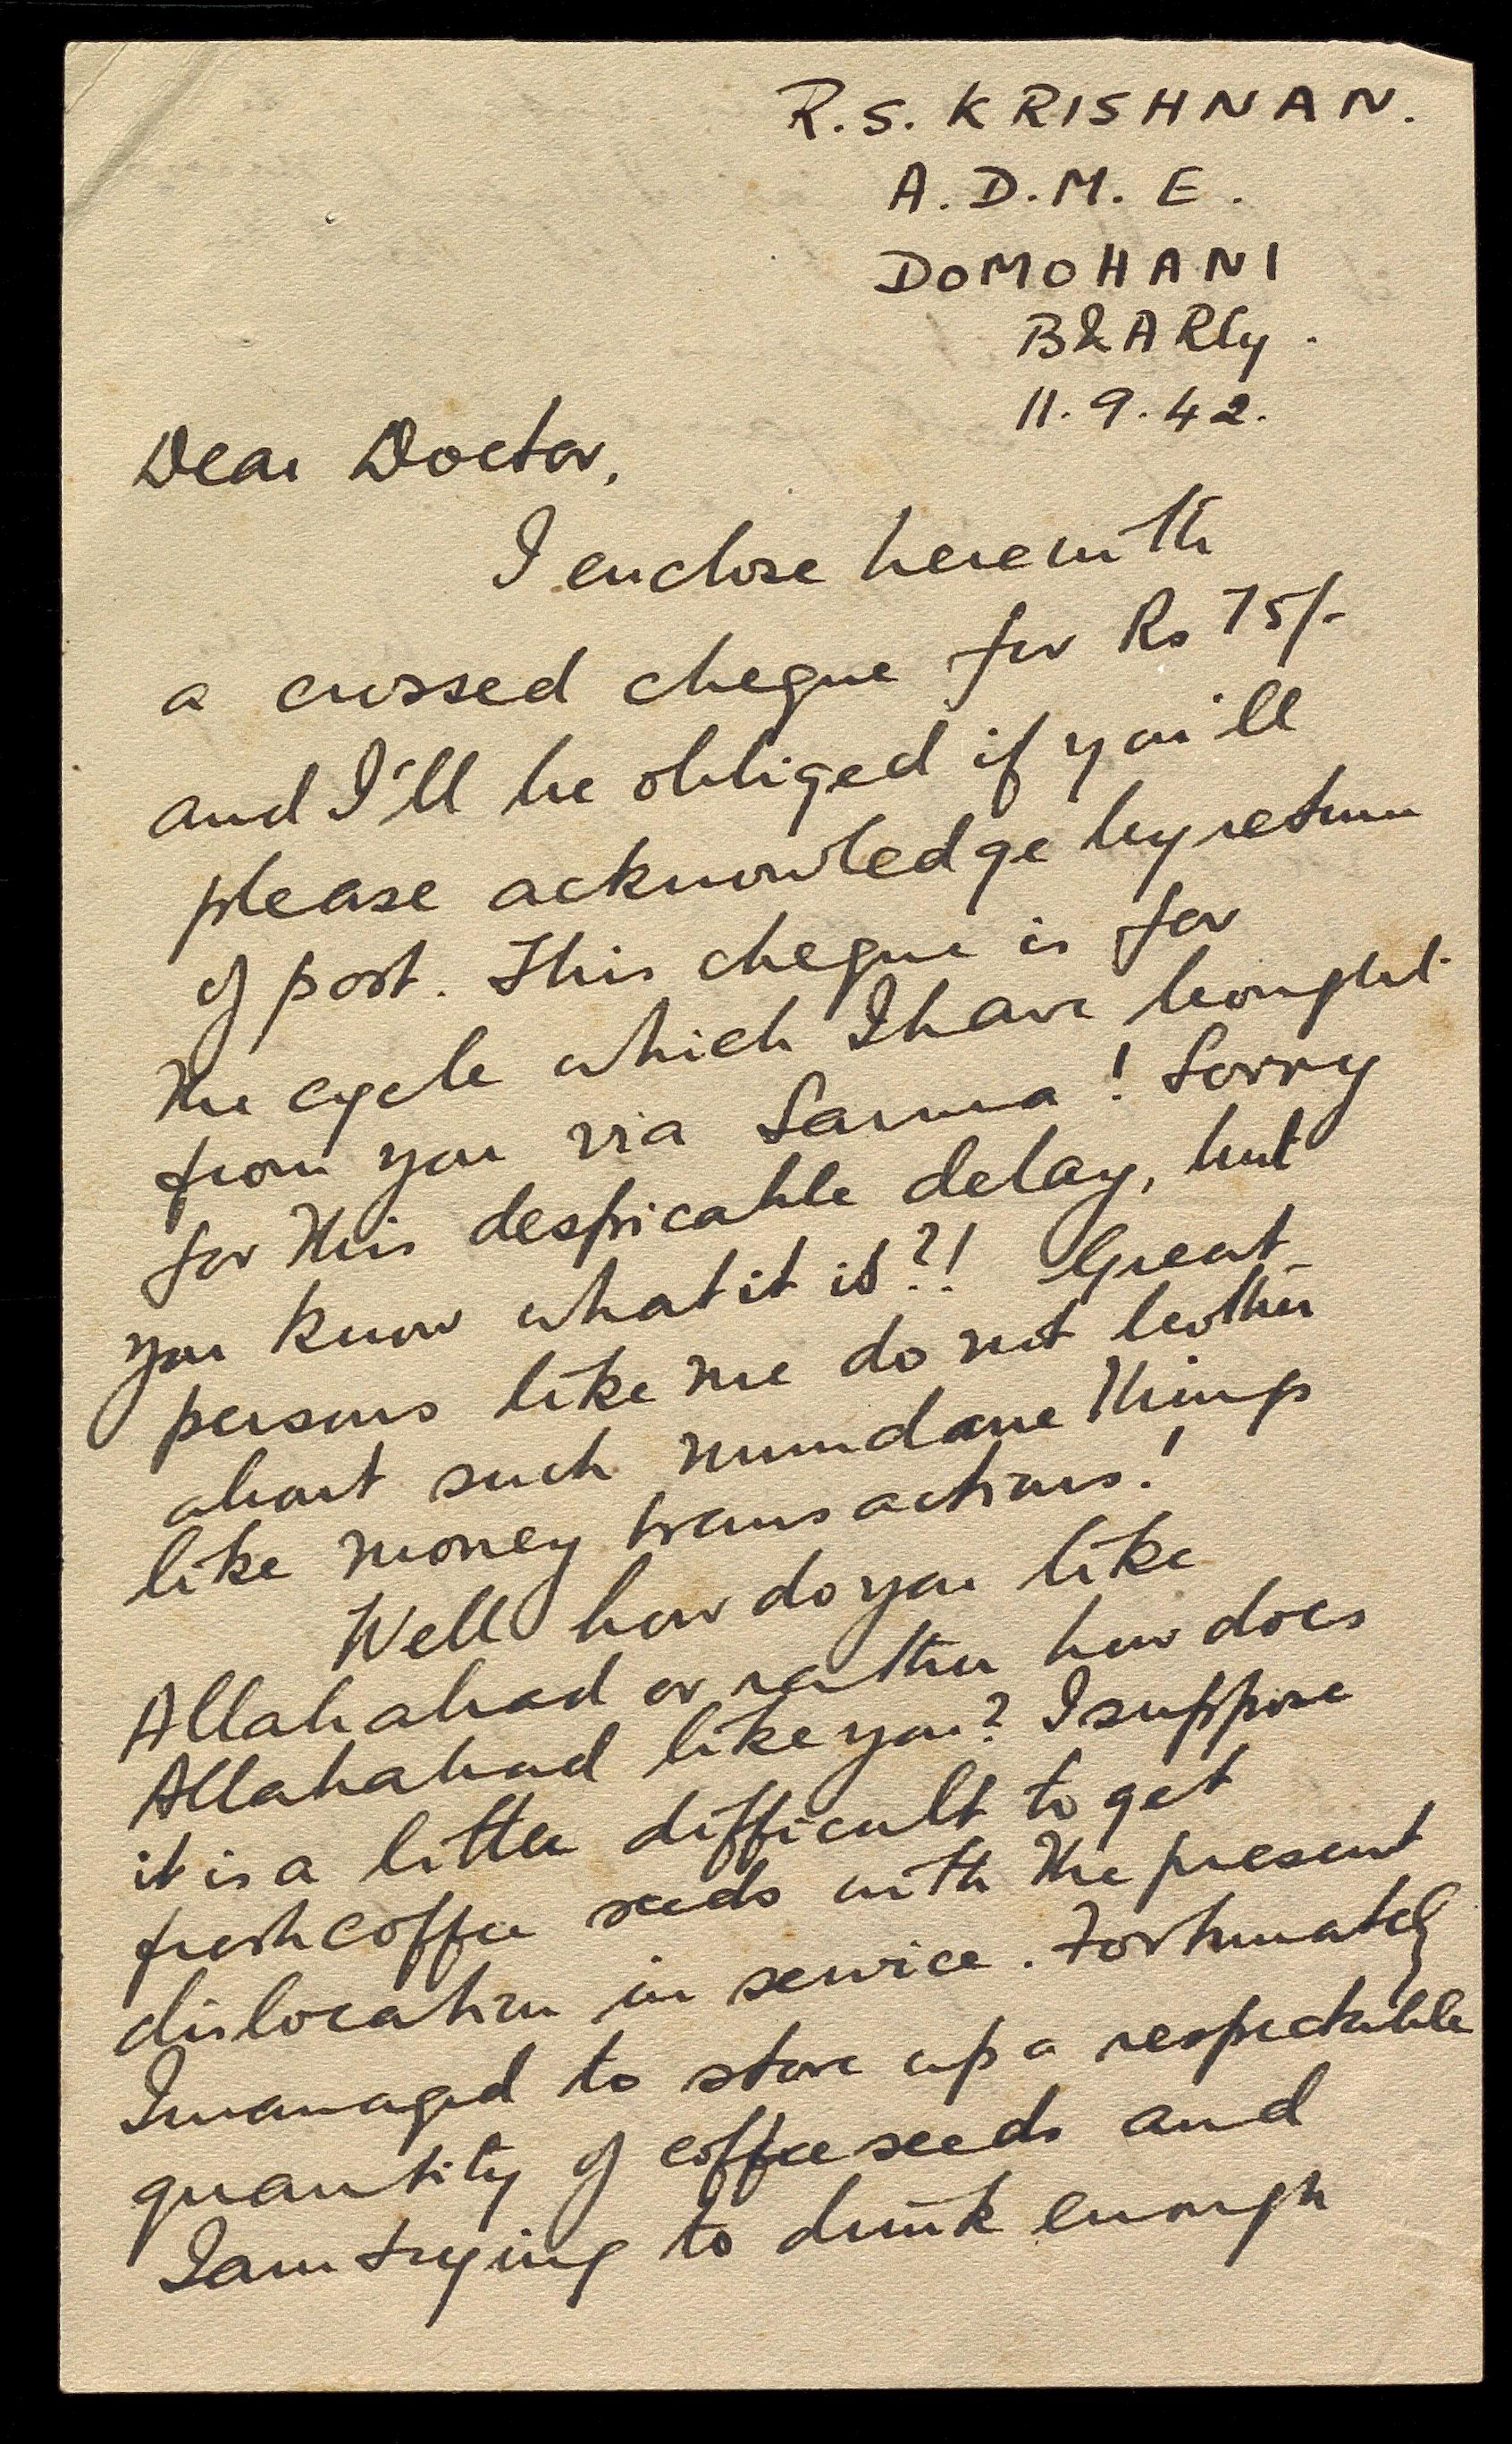 R.S. KRISHNAN.
A.D.M.E.
DOMOHANI
B&A Rly.
11.9.42.
Dear Doctor,
I enclose herewith
a crossed cheque for Rs 75/-
and I'll be obliged if you'll
please acknowledge by return
of post. This cheque is for
the cycle which I have bought
from you via Sarma! Sorry
for this despicable delay, but
you know what it is?! Great
persons like me do not bother
about such mundane things
like money transactions!
Well how do you like
Allahabad or rather how does
Allahabad like you? I suppose
it is a little difficult to get
fresh coffee seeds with the present
dislocation in service. Fortunately
I managed to store up a respectable
quantity of coffee seeds and
I am trying to drink enough